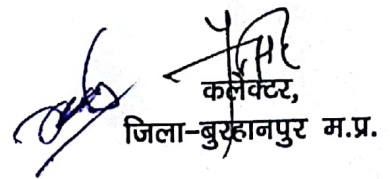 कलेक्टर,
जिला-बुरहानपुर म.प्र.